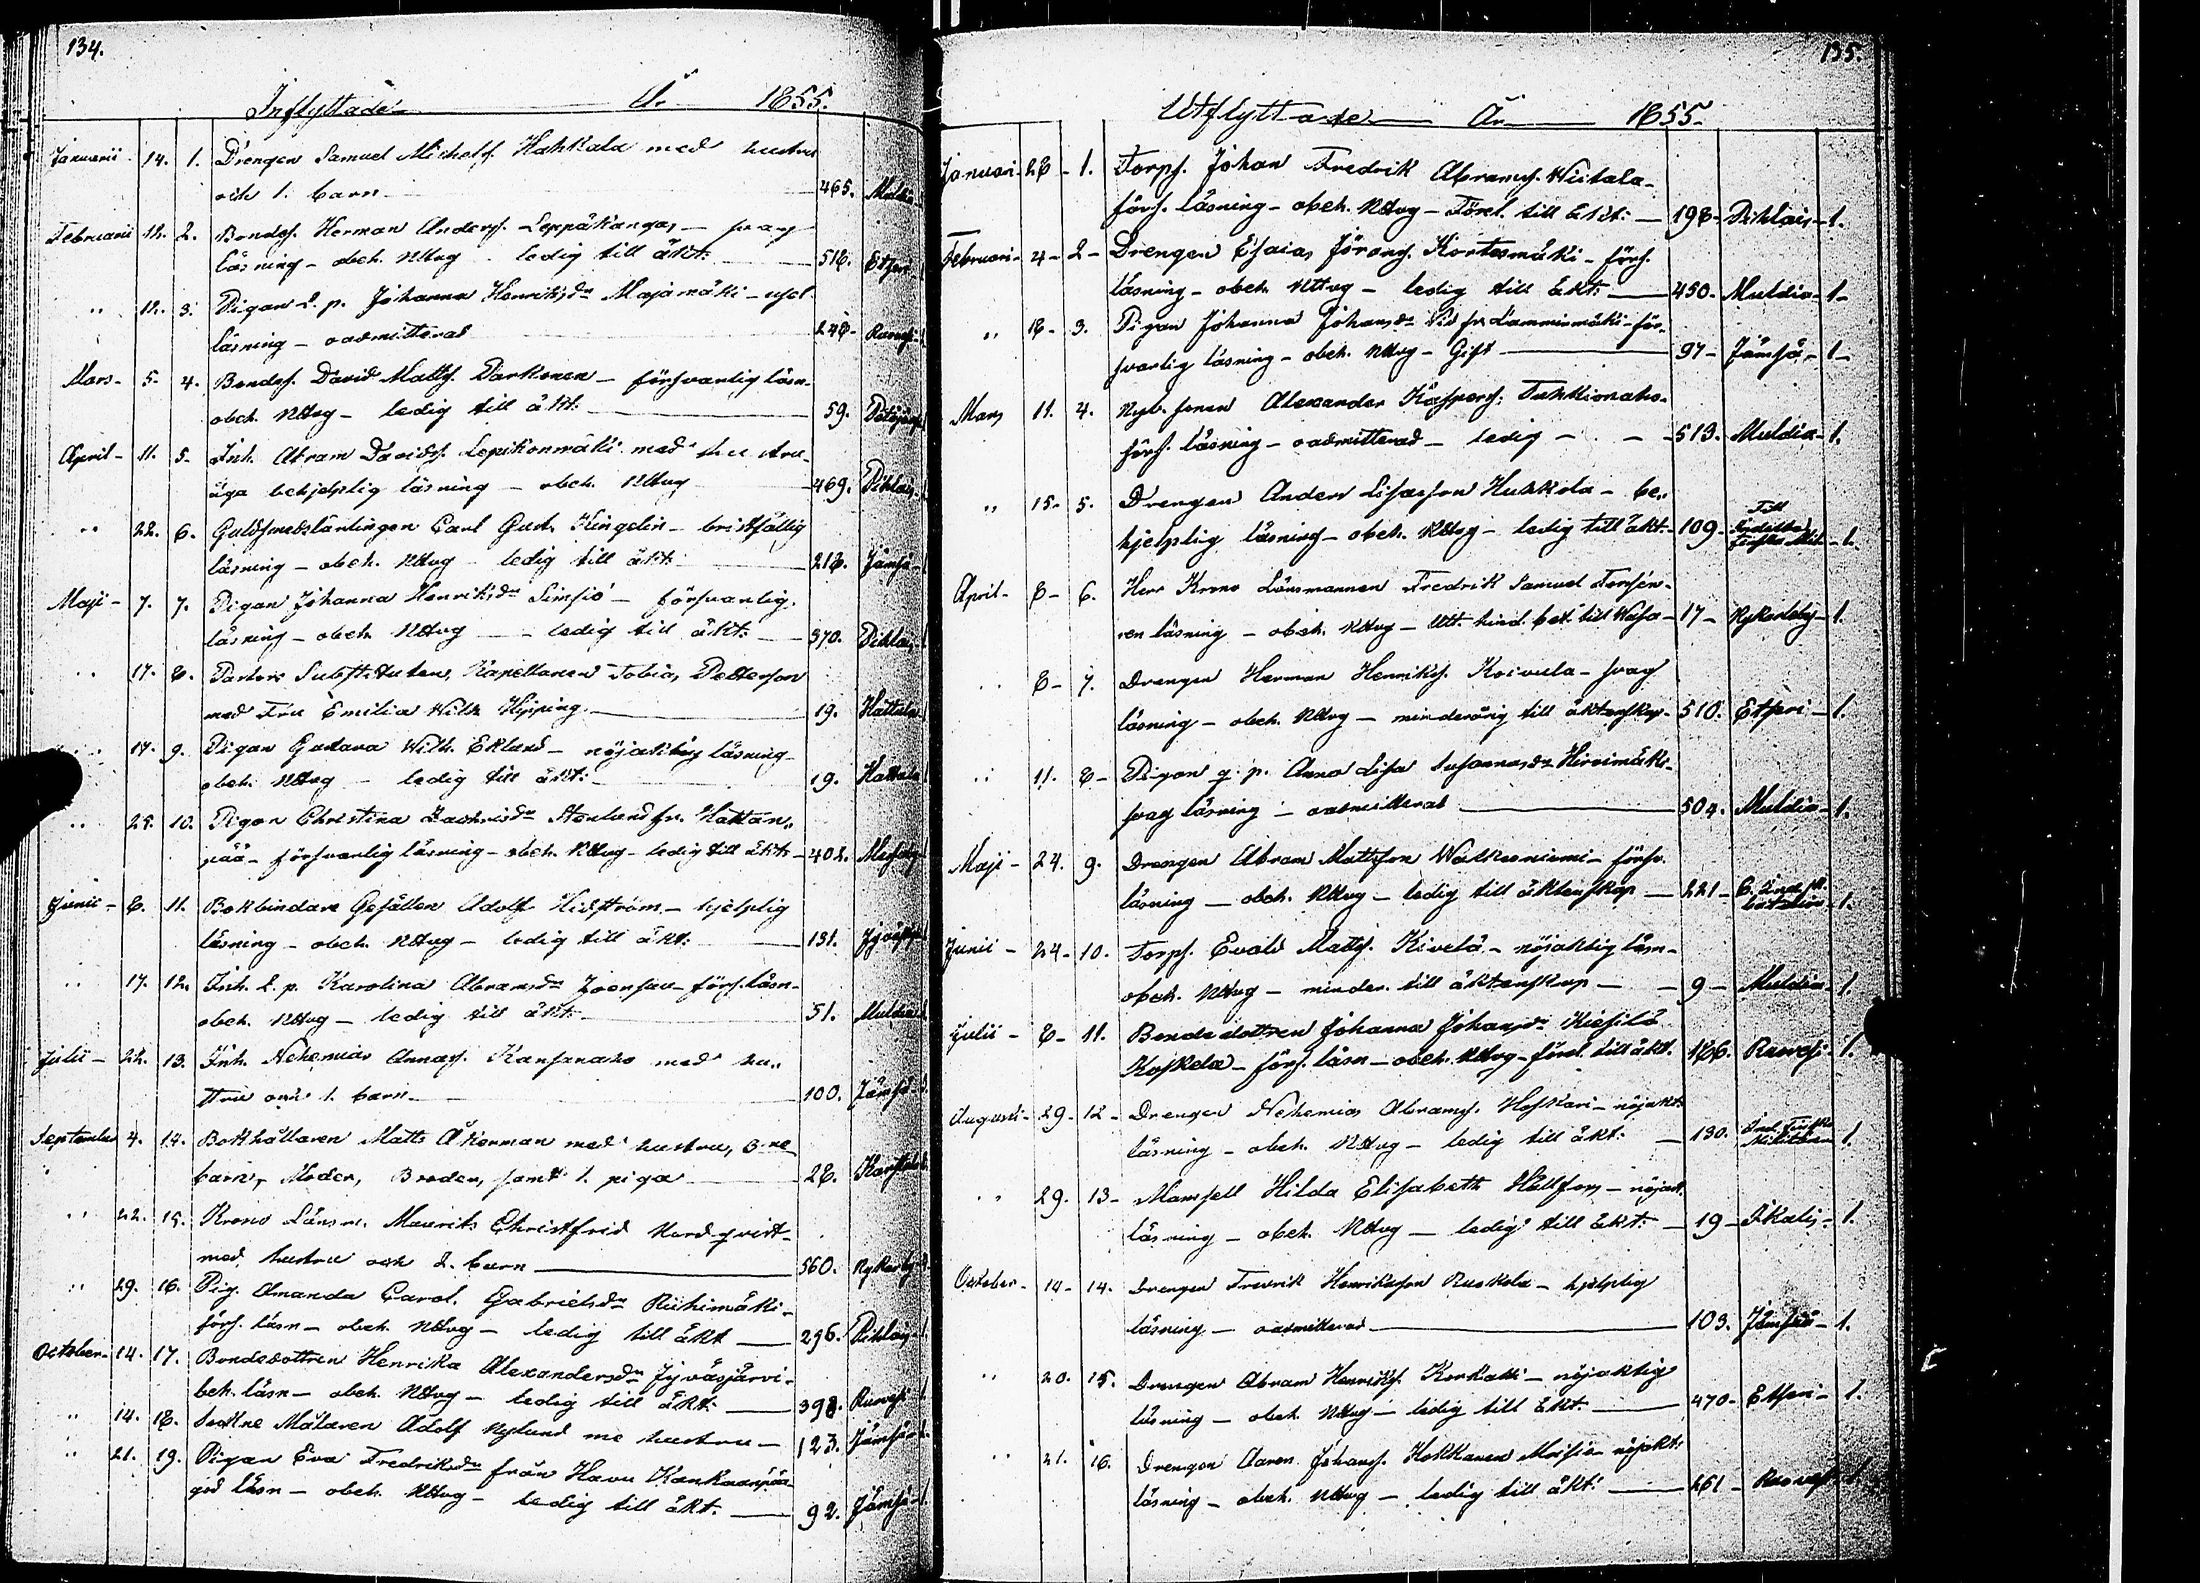 134.
Inflyttade År 1855.
Januarii 14. 1. Drengen Samuel Michelss. Hahkala med hustru
och 1. barn 465. Muldia
Februarii 12. 2. Bondes. Herman Anderss. Leppäkangas, — svag
läsning — obeh. Nttvg — ledig till äkt. 518. Etseri
" 12. 3. Pigan l. p. Johanna Henriksdr Majamäki —
läsning — oadmitterad 248. Ruovesi
Mars — 5. 4. Bondes. David Matts. Parkonen — försvarlig läsn.
obeh. Nttvg — ledig till äkt. 59. Petäjäv.
April — 11. 5. Inh. Abram Davids. Lepikonmäki med hustru
äga behjelplig läsning — obeh. Nttvg 469. Pihlajav.
" 22. 6. Guldsmedslärlingen Carl Gust. Kingelin — bristfällig
läsning — obeh. Nttvg — ledig till äkt. 218. Jämsä
Maji — 7. 7. Pigan Johanna Henriksdr Simsiö — försvarlig
läsning — obeh. Nttvg — ledig till äkt. 370. Pihlajav.
" 17. 8. Pastors Substituten, Kapellanen Tobias Petterson
med Fru Emilia Wilh. Hipping 19. Hattula
" 17. 9. Pigan Gustava Wilh. Eklund — nöjaktig läsning
obeh. Nttvg — ledig till äkt. 19. Hattula
" 25. 10. Pigan Christina Zachrisdr Stenlund fr. Hattan„
pää — försvarlig läsning — obeh. Nttvg — ledig till äkt. 402.
Junii — 8. 11. Bokbindare Gesällen Adolf Hidström — hjelplig
läsning — obeh. Nttvg — ledig till äkt. 131.
" 17. 12. Inh. l. p. Karolina Abramsdr Joensuu — förs. läsn.
obeh. Nttvg — ledig till äkt. 51. Muldia
Julii — 22. 13. Inh. Nehemias Annass. Kansanaho med hu„
stru och 1. barn 100. Jämsä
September 4. 14. Bokhållaren Matts Åkerman med hustru, 3 ne
barn, Moder, Broder, samt 1. piga 28. Karstula
" 22. 15. Krono Länsm. Maurits Christfrid Nordqvist
med hustru och 2. barn 560. Nykarleby
" 29. 16. Pig. Amanda Carol. Gabrielsdr Riihimäki
förs. läsn — obeh. Nttvg — ledig till äkt 296. Pihlajav.
October — 14. 17. Bondedottren Henrika Alexandersdr Jyväsjärvi
beh. läsn — obeh. Nttvg — ledig till äkt. 398. Ruovesi
" 14. 18. Sockne Målaren Adolf Nylund me hustru — 123. Jämsä
" 21. 19. Pigan Eva Fredriksdr från Havu Kankaanpää
god läsn — obeh. Nttvg — ledig till äkt. 92. Jämsä
135.
Utflyttade År 1855.
Januari — 28 — 1. Torps. Johan Fredrik Abrams. Wiitala
förs. läsning — obeh. Nttvg — Förel. till äkt. — 198 — Pihlajav. — 1.
Februari — 4 — 2 — Drengen Esaias Jörans. Kortesmäki — förs.
läsning — obeh. Nttvg — ledig till äkt. 450. Muldia — 1
" 18 — 3. Pigan Johanna Johansdr Lamminmäki — för„
svarlig läsning — obeh. Nttvg — Gift 97 — Jämsä — 1
Mars 11. 4. Nyb. sonen Alexander Kaspers. Tuhkionaho
förs. läsning — oadmitterad — ledig — 513. Muldia — 1.
" 15. 5. Drengen Anders Lisasson Hukkola — be„
hjelplig läsning — obeh. Nttvg — ledig till äkt. 109 — Till Finska Mil. — 1.
April — 8 — 6. Herr Krono Länsmannen Fredrik Samuel
ren läsning — obeh. Nttvg — till Wasa — 17 — Nykarleby — 1.
" 8 — 7. Drengen Herman Henriks. Koivula — svag
läsning — obeh. Nttvg — minderårig till äktenskap — 510. Etseri — 1.
" 11. 8 — Pigan g. p. Anna Lisa Susannasdr Hirvimäki
svag läsning — oadmitterad 504. Muldia — 1.
Maji — 24. 9. Drengen Abram Mattsson Walkeeniemi — försv.
läsning — obeh. Nttvg — ledig till äktenskap — 221 — bataljon — 1.
Junii — 24 — 10. Torps. Evald Matts. Kivelä — nöjaktig läsn.
obeh. Nttvg — minder. till äktenskap — 9 — Muldia — 1.
Julii — 8 — 11. Bondedottren Johanna Johansdr Kiesilä
Koskela — förs. läsn — obeh. Nttvg — förel. till äkt. 166. Ruovesi — 1.
Augusti — 29 — 12 — Drengen Nehemias Abrams. Hoskari — nöjakt.
läsning — obeh. Nttvg — ledig till äkt. — 130. Ind. Finska Militären 1.
" 29. 13 — Mamsell Hilda Elisabeth Hellfors — nöjakt.
läsning — obeh. Nttvg — ledig till äkt. — 19 — Ikalis — 1.
October — 14 — 14. Drengen Fredrik Henriksson Ruokola — hjelplig
läsning — oadmitterad 103. Jämsä — 1.
" 20. 15. Drengen Abram Henriks. Korkatti — nöjaktig
läsning — obeh. Nttvg — ledig till äkt. 470 — Etseri — 1.
" 21. 16. Drengen Aaron Johans. Hokkanen — nöjakt.
läsning — obeh. Nttvg — ledig till äkt. 261 — Ruovesi 1.